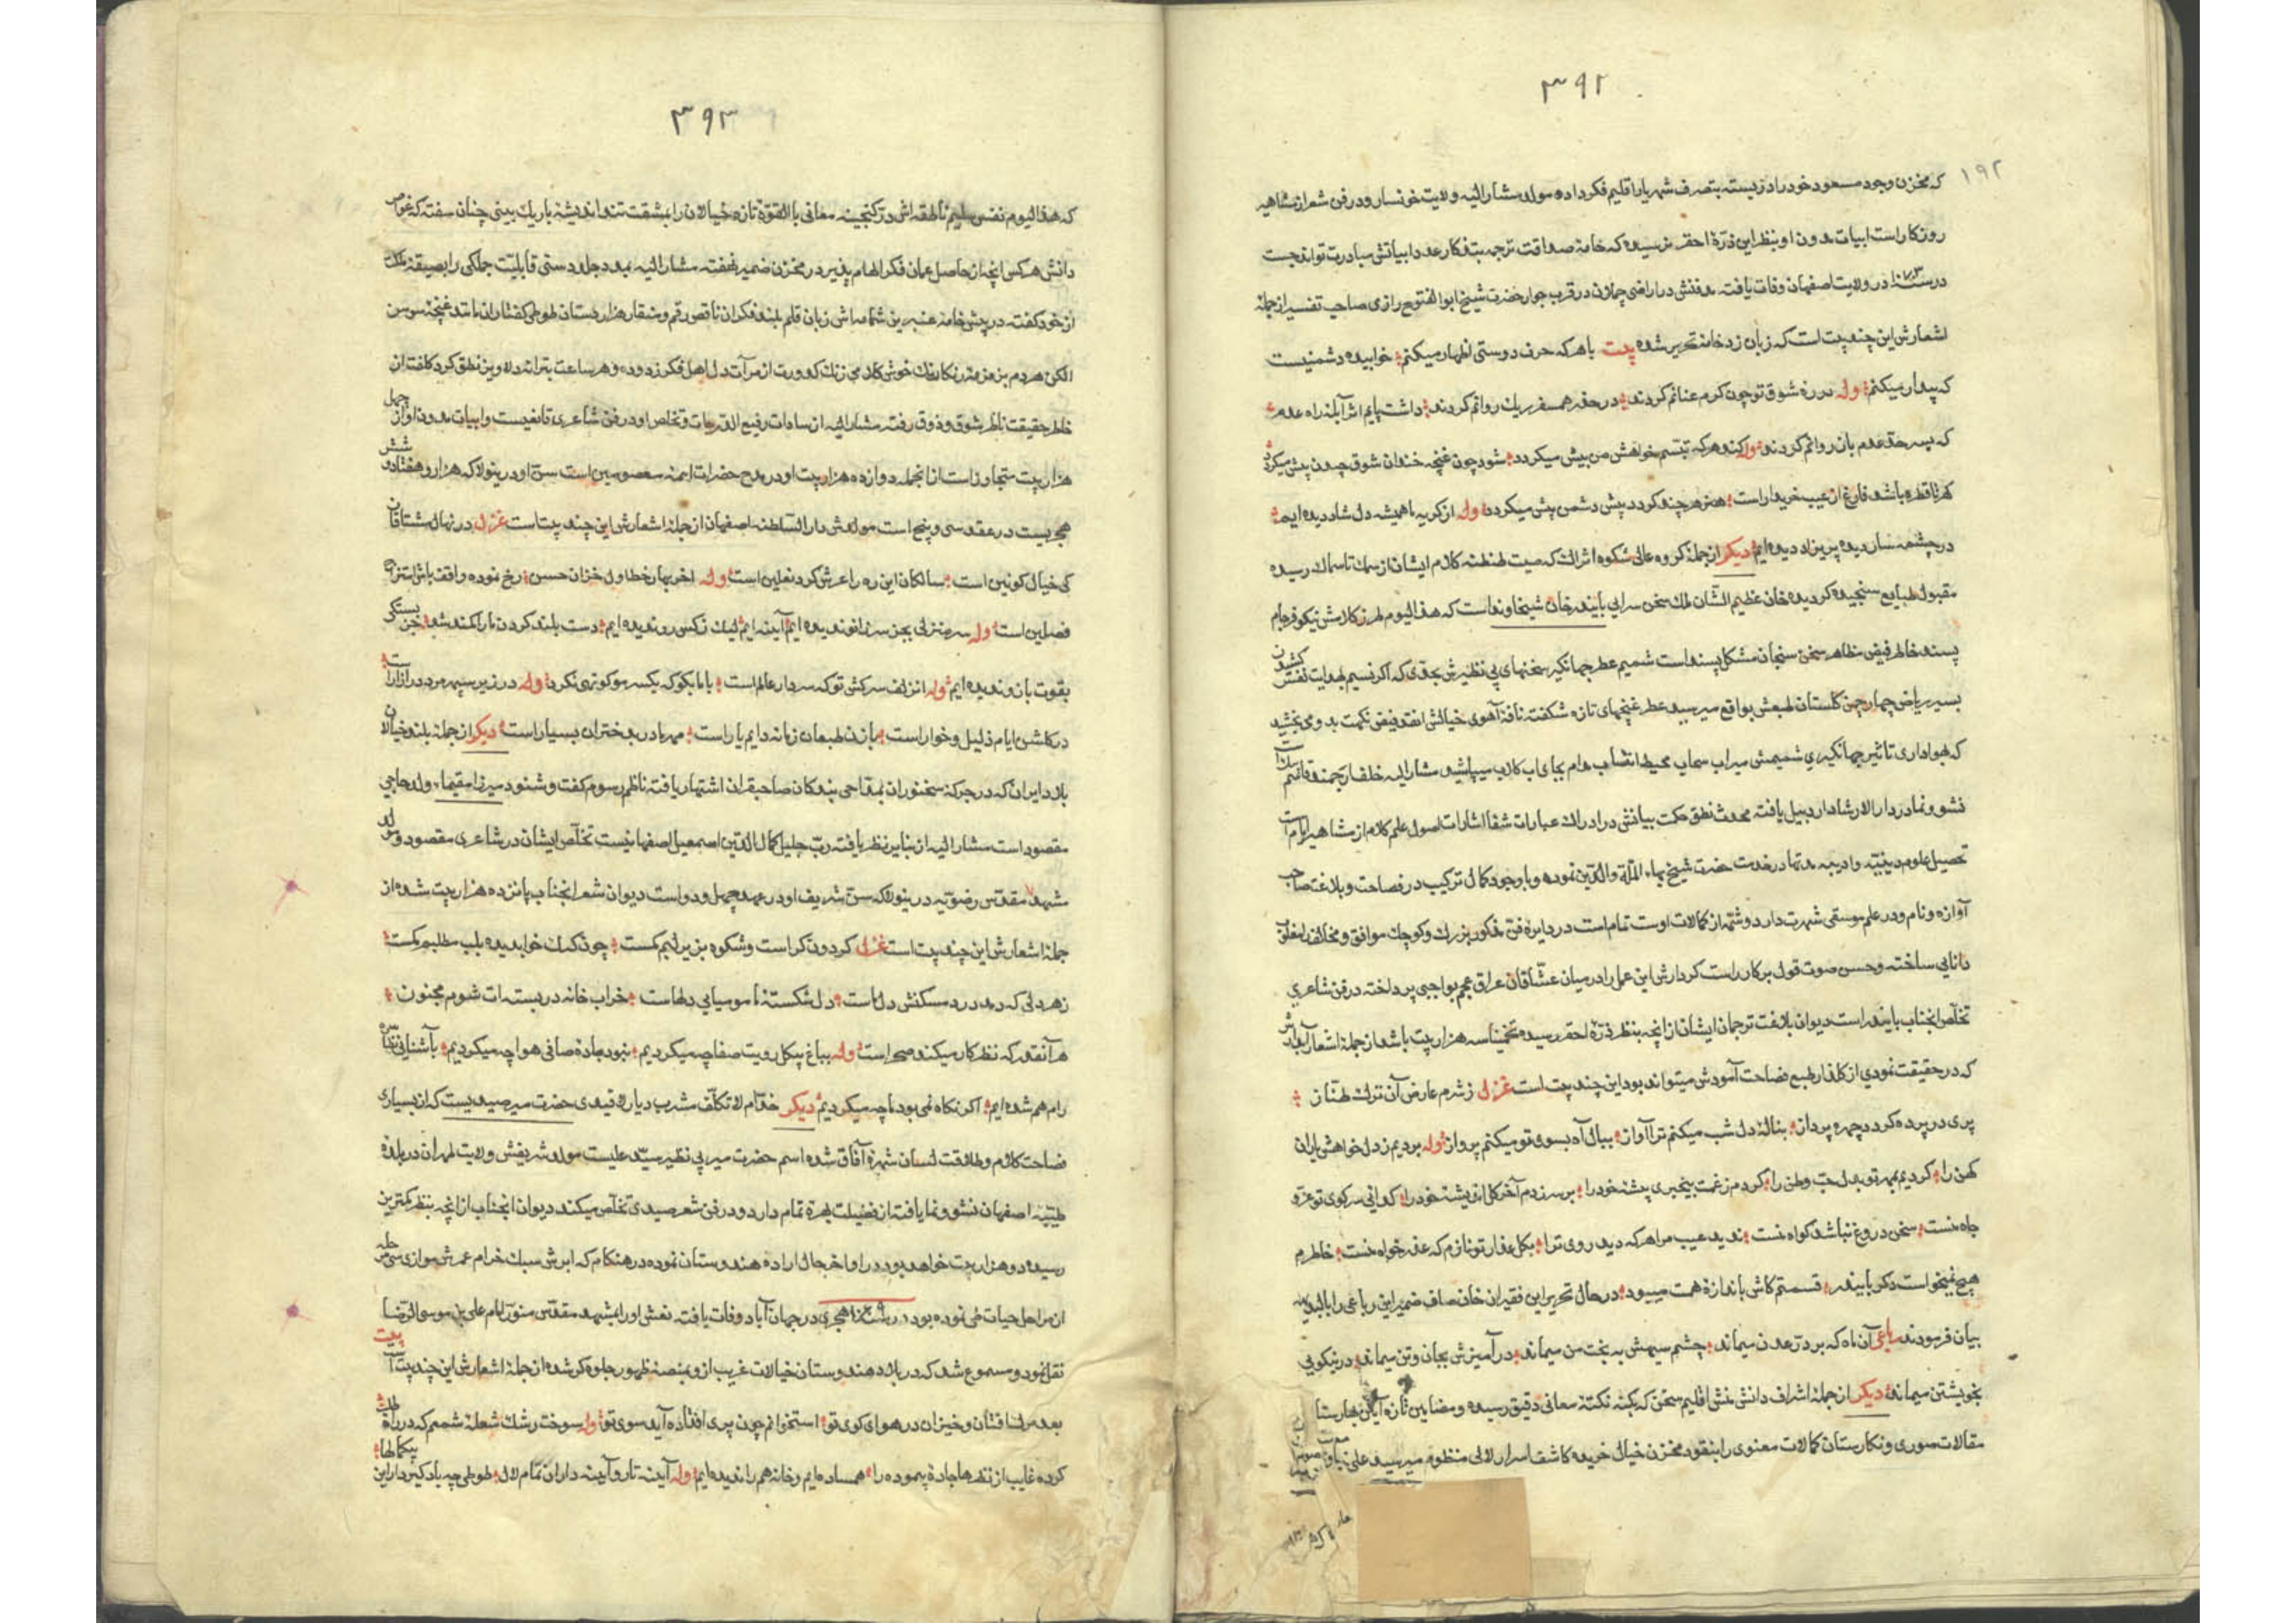 ۳۹۲
۱۹۲
که مخزن وجود مسعود خود را در بسته بتصرف شهریار اقلیم فکر داده مولد مشار الیه ولایت خونسار و در فن شعر از مشاهیر
روزکار است ابیات مدون او بنظر این ذرهٔ احقر نرسیده که خامهٔ صداقت ترجمه بتذکار عدد ابیاتش مبادرت تواند جست
در سنهٔ در ولایت اصفهان وفات یافته مدفنش در اراضی چملان در قرب جوار حضرت شیخ ابوالفتوح رازی صاحب تفسیر از جملهٔ
اشعارش این چند بیت است که زبان زد خامهٔ تحریر شده بیت با هر که حرف دوستی اظهار میکنم خوابیده دشمنیست
که بیدار میکنم وله در ره شوق تو چون کرم عنانم کردند در حقه همسفر ریك روانم کردند داشت پایم اثر آبله راه عدم
که بسر حد عدم باز روانم کردند وله کند هر که تبسم خواهش من بیش میکردد شود چون غنچه خندان شوق چیدن بیش میکردد
کهر تا قطره باشد فارغ از عیب خریدار است هنر هر چند کردد بیش دشمن بیش میکردد وله از کریه ما همیشه دل شاد دیده ایم
در چشمه سار دیده پریزاد دیده ایم دیکر از جملهٔ کروه عالی شکوه اتراك که صیت طنطنه کلام ایشان از سمك تا سماك رسیده
مقبول طبایع سنجیده کردیده خان عظیم الشان ملك سخن سرایی بایندر خان شیخاوند است که هذا الیوم طرز کلامش نیکو فرجام
پسند خاطر فیض مظاهر سخن سنجان مشکل پسند است شمیم عطر جهانکیر سخنهای بی نظیرش بحدی که اکر نسیم هدایت نفسش
بسیر ریاض چهار چمن کلستان طبعش بواقع میرسید عطر غنچهای تازه شکفته نافهٔ آهوی خیالش انقدر فیض نکهت بدو می بخشید
که بهواداری تاثیر جهانکیری شمیمش میراب سحاب محیط انتساب مدام بجای اب کلاب میپاشید مشار الیه خلف ارجمند
نشو و نما در دار الارشاد اردبیل یافته محدث نطق حکمت بیانش در ادراك عبارات شفا اشارات اصول علم کلام از مشاهیر ایام است
تحصیل علوم دینیّه و ادبیه مدتها در خدمت حضرت شیخ بهاء الملة والدین نموده و با وجود کمال ترکیب در فصاحت و بلاغت صاحب
آوازه و نام و در علم موسقی شهرت دارد و شمّهٔ از کمالات اوست تمام است در دایرهٔ فن مذکور بزرك و کوچك موافق و مخالف
دانایی ساخته و حسن صوت قول برکار راست کردارش این عمل را در میان عشّاقان عراق عجم بواجبی پرداخته در فن شاعری
تخلّص انجناب بایندر است دیوان بلاغت ترجمان ایشان از انچه بنظر ذرهٔ احقر رسیده تخمیناً سه هزار بیت باشد از جملهٔ اشعار آبدارش
که در حقیقت نمودی از کلذار طبع فصاحت آموذش میتواند بود این چند بیت است غزل ز شرم عارض آن ترك طناز
پری در پرده کردد چهره پرداز بنالهٔ دل شب میکنم ترا آواز ببال آه بسوی تو میکنم پرواز وله بردیم ز دل خواهش یاران
کهن را کردیم بمهر تو بدل حبّ وطن را کردم ز غمت بیخبری پیشه خود را بر سر زدم آخر کل اندیشه خود را کدائی سر کوی تو عزّ و
جاه منست سخن دروغ نباشد کواه منست ندید عیب مرا هر که دید روی ترا بکلعذار تو نازم که عذر خواه منست خاطرم
هیچ نمیخواست دکر بایندر قسمتم کاش باندازهٔ همت میبود در حال تحریر این فقیر ان خان صاف ضمیر این رباعی را
بیان فرمودند رباعی آن ماه که بر درّ عدن میماند چشم سیهش به بخت من میماند در آمیزش بجان و تن میماند در نیکویی
بخویشتن میماند دیکر از جملهٔ اشراف دانش منش اقلیم سخن که بکنه نکتهٔ معانی دقیق رسیده و مضامین تازه آیین بهارستان
مقالات صوری و نکارستان کمالات معنوی را بنقود مخزن خیال خریده کاشف اسرار لالی منظوم میر سید علی
۳۹۳
که هذا الیوم نفس سلیم ناطقه اش درّ کنجینه معانی بالقوّة تازه خیالان را بمشقت تند اندیشهٔ باریك بینی چنان سفته که غواص
دانش هرکس انچه از حاصل عمان فکر الهام پذیر در مخزن ضمیر نهفته مشار الیه بمدد جلد دستی قابلیّت جملکی را بصیقهٔ
از خود کفته در پیش خامهٔ عنبرین شمامه اش زبان قلم بلند فکران ناقص رقم و منقار هزار دستان طوطی کفتاران مانند غنچهٔ سوسن
الکن هر دم بزمزمهٔ رنکارنك خوش کلامی زنك کدورت از مرآت دل اهل فکر زدوده و هر ساعت بترانه دلاویز نطق کرد کلفت از
خاطر حقیقت ناظر بشوق و ذوق رفته مشار الیه از سادات رفیع الدرجات و تخلص او در فن شاعری تانعیست و ابیات مدون او از چهل
هزار بیت متجاوز است از انجمله دوازده هزار بیت او در مدح حضرات ایمنه معصومین است سنّ او در ینولا که هزار و هفتاد و شش
هجریست در عقد سی و پنج است مولدش دار السلطنه اصفهان از جملهٔ اشعارش این چند بیت است غزل در نهال مشتاقان
کی خیال کونین است سالکان این ره را عرش کرد نعلین است وله اخر بهار خط اول خزان حسن رخ نموده واقف باش
فصلین است وله سر منزلی بجز سر زانو ندیده ایم آینه ایم لیك ز کس رو ندیده ایم دست بلند کردن ما را کمند شد
بقوت بازو ندیده ایم وله از زلف سرکش تو که سردار عالم است با ما بکو که یکسر مو کوتهی نکرد وله در زیر سپهر مرد در ازار است
در کلشن ایام ذلیل و خوار است با زن طبعان زمانه دایم یار است مهر مادر بدختران بسیار است دیکر از جملهٔ بلند خیالان
بلاد ایران که در جرکهٔ سخنوران بمدّاحی بندکان صاحبقران اشتهار یافته ناظم رسوم کفت و شنود میرزا مقیما ولد حاجی
مقصود است مشار الیه از بنایر نظر یافته ربّ جلیل کمال الدین اسمعیل اصفهانیست تخلّص ایشان در شاعری مقصود و مولد
مشهد مقدّس رضویّه در ینولا که سنّ شریف او در عهد چهل و دو است دیوان شعر انجناب پانزده هزار بیت شده از
جملهٔ اشعارش این چند بیت است غزل کردون کراست و شکوه بزیر لبم کمست چون کنك خواب دیده بلب مطلبم کمست
زهر دلی که دمد درد مسکنش دل ماست دل شکستهٔ ما مومیایی دلهاست خراب خانه در بسته ات شوم مجنون
هر آنقدر که نظر کار میکند صحراست وله بباغ بیکل رویت صفا چه میکردیم نبود بادهٔ صافی هوا چه میکردیم بآشنائی
رام هم شده ایم اکر نکاه نمی بود ما چه میکردیم دیکر خدّام لا تکلّف مشرب دیار لا قیدی حضرت میر صیدیست که از بسیاری
فصاحت کلام و طلاقت لسان شهرهٔ آفاق شده اسم حضرت میر بی نظیر سیّد علیست مولد شریفش ولایت طهران در بلدهٔ
طیّبه اصفهان نشو و نما یافته از فضیلت بهرهٔ تمام دارد و در فن شعر صیدی تخلّص میکند دیوان انجناب از انچه بنظر کمترین
رسیده دو هزار بیت خواهد بود در اواخر حال اراده هندوستان نموده در هنکام که ابرش سبك خرام عمرش موازی سی مرحله
از مراحل حیات طی نموده بود در سنه هجری در جهان آباد وفات یافته نعش او را بمشهد مقدّس منوّر امام علی بن موسی الرّضا
نقل نمود و مسموع شد که در بلاد هندوستان خیالات غریب از و بمنصهٔ ظهور جلوه کر شده از جملهٔ اشعارش این چند بیت است بیت
بعد مرك افتان و خیزان در هوای کوی تو استخوانم چون پری افتاده آید سوی تو وله سوخت رشك شعلهٔ شمعم که در راه طلب
کرده غایب از نظرها جادهٔ پیموده را همساده ایم و خانه هم را ندیده ایم وله آینه تار و آینه داران تمام لال طوطی چه یاد کیرد از این